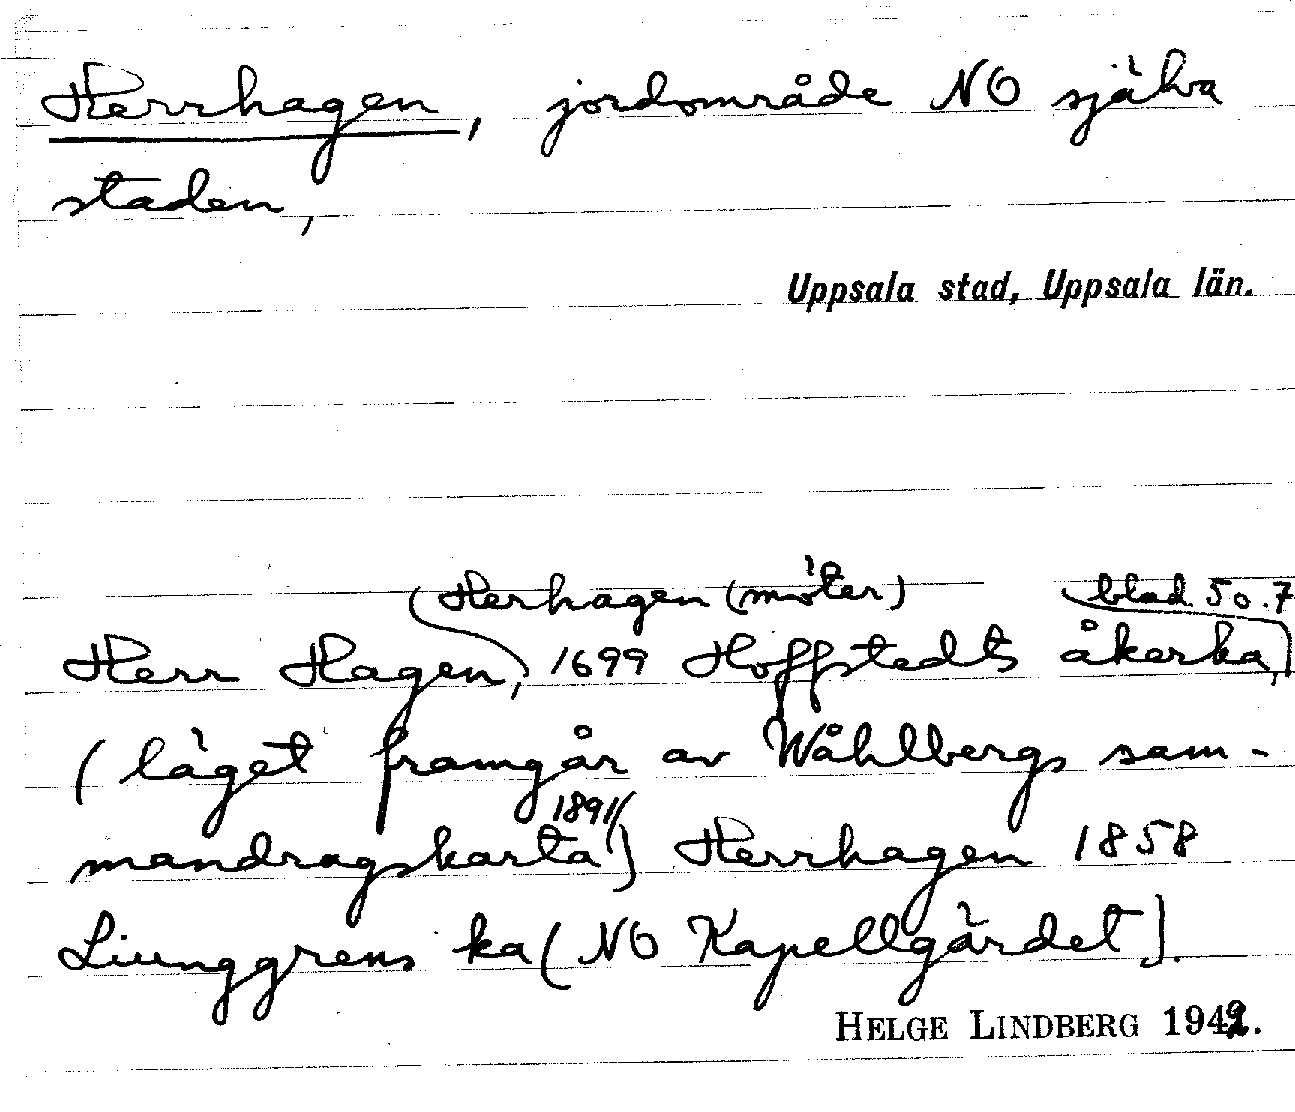 Herrhagen, jordområde NO själva
staden,
Uppsala stad, Uppsala län.
(Herhagen (möter) blad 50.7
Herr Hagen, 1699 Hoffstedts åkerka,
(läget framgår av Wåhlbergs sam-
mandragskarta 1891) Herrhagen 1858
Liunggrens ka (NO Kapellgärdet).
HELGE LINDBERG 1942.